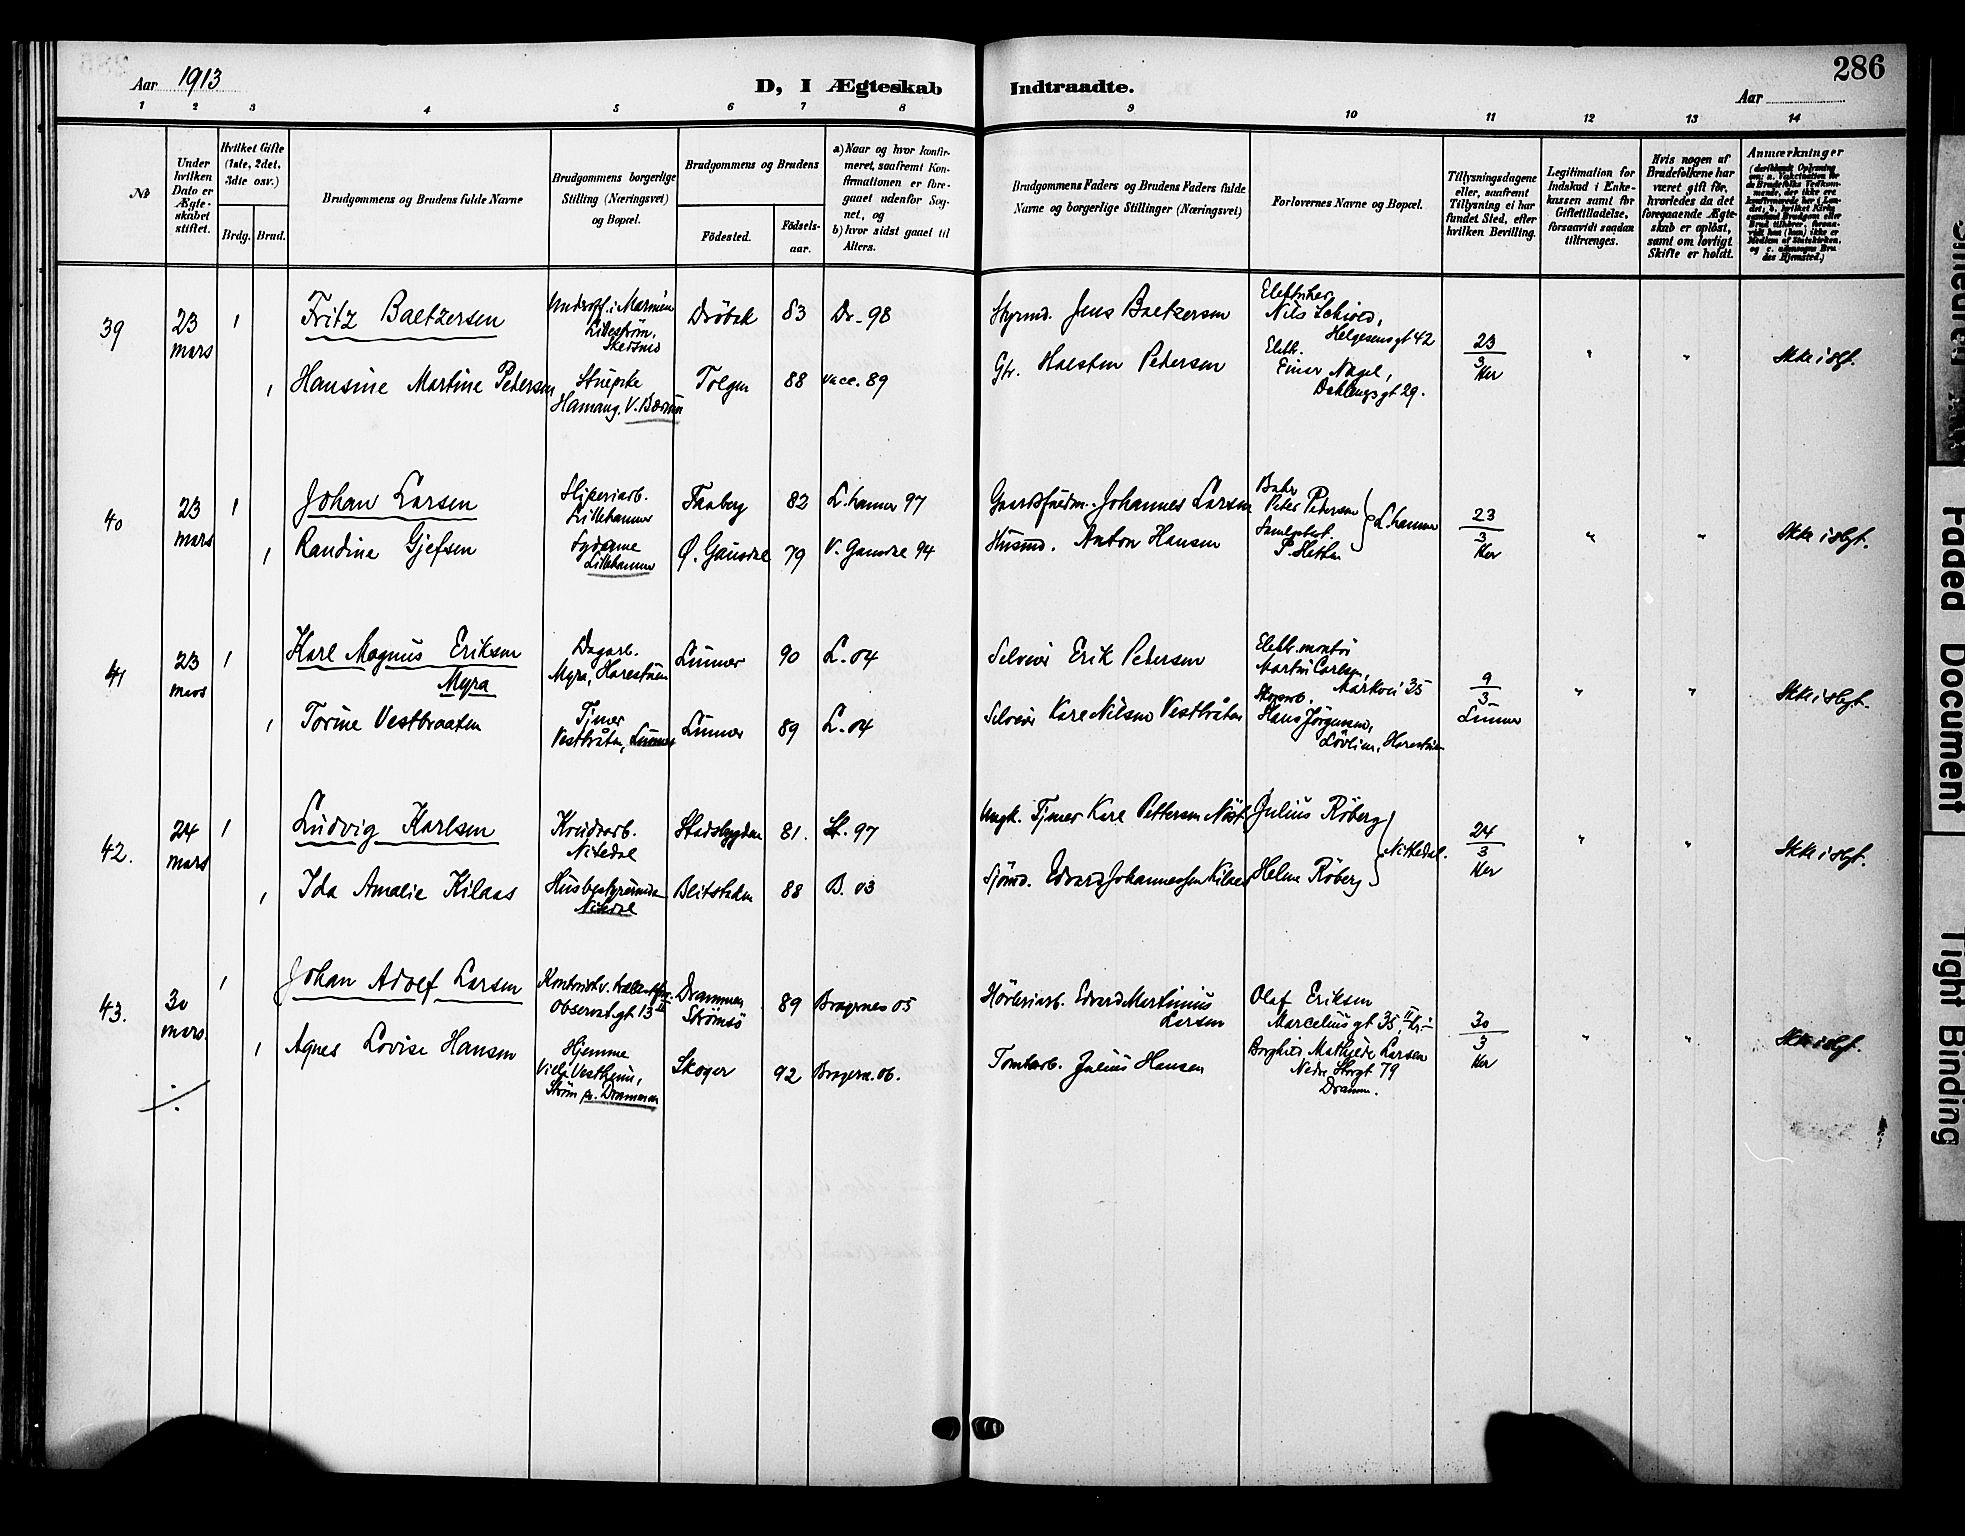 Aar 1913
D, I Ægteskab
Indtraadte.
286
Aar
1 2 3 4 5 6 7 8 9 10 11 12 13 14
No
Under hvilken Dato er Ægteskabet stiftet.
Hvilket Gifte (1ste, 2det, 3die osv.)
Brdg. Brud.
Brudgommens og Brudens fulde Navne
Brudgommens borgerlige Stilling (Næringsvei) og Bopæl.
Brudgommens og Brudens
Födested.
Födselsaar.
a) Naar og hvor konfirmeret, saafremt Konfirmationen er foregaaet udenfor Sognet, og
b) hvor sidst gaaet til Alters.
Brudgommens Faders og Brudens Faders fulde Navne og borgerlige Stillinger (Næringsvei)
Forlovernes Navne og Bopæl.
Tillysningsdagene eller, saafremt Tillysning ei har fundet Sted, efter hvilken Bevilling.
Legitimation for Indskud i Enkekassen samt for Giftetilladelse, forsaavidt saadan tiltrænges.
Hvis nogen af Brudefolkene har været gift før, hvorledes da det foregaaende Ægteskab er opløst, samt om lovligt Skifte er holdt.
Anmærkninger
39 23 mars 1 Fritz Baetzersen
Underoff. i Marinen
Lillestrøm, Skedsmo
Dröbak 83 Dr. 98
Styrmd. Jens Baetzersen
Elektriker
Nils Schiøed,
Helgesensgt 42
23/3 Her
" " Ikke i slgt.
1 Hansine Martine Petersen
Stuepike
Hamang, V. Bærum
Tolgen 88 vacc. 89
Gbr. Halsten Petersen
Elektr.
Einar Nagel,
Dahlengsgt 29.
40 23 mars 1 Johan Larsen
Sliperiarb.
Lillehammer
Faaberg 82 L.hamer 97
Johannes Larsen
Peter Petersen
L.hamer
23/3 Her
" " Ikke i slgt.
1 Randine Gjefsen
Sydame
Lillehammer
Ø. Gausdal 79 V. Gausdal 94
Husmd. Anton Hansen
41 23 mars 1 Karl Magnus Eriksen
Myra
Dagarb.
Myra, Harestuen
Lunner 90 L. 04
Selveier Erik Petersen
Elektr. montör
Martin Carlsen,
Markvei 35
9/3 Lunner
" " Ikke i slgt.
1 Torine Vestbraaten
Tjener
Vestbråten, Lunner
Lunner 89 L. 04
Selveier Karl Nilsen Vestbråten
Skogarb.
Hans Jörgensen,
Lövlien, Harestuen
42. 24 mars 1 Ludvig Karlsen
Krudtarb.
Nitedal
Stadsbygden 81. St. 97
Ungk. Tjener Karl Pettersen
Julius Röberg
Nittedal.
24/3 Her
" " Ikke i slgt.
1 Ida Amalie Kilaas
Nitedal
88 B. 03
Sjömd. Edvard Johannessen Kilaas
Helene Röberg
43. 30 mars. 1 Johan Adolf Larsen
Observat.gt 13
Drammen
Strømsö
89 Bragernes 05
Edvard Martinius
Larsen
Olaf Eriksen
Marcelius gt 35
30/3 Her
" " Ikke i slgt.
1 Agnes Lovise Hansen
Hjemme
Villa Vestheim,
Strøm pr. Drammen
Skoger 92 Bragern. 06.
Tomtearb. Julius Hansen
Borghild Mathilde Larsen
Nedr Storgt 79
Dramm.
Faded Document
Tight Binding